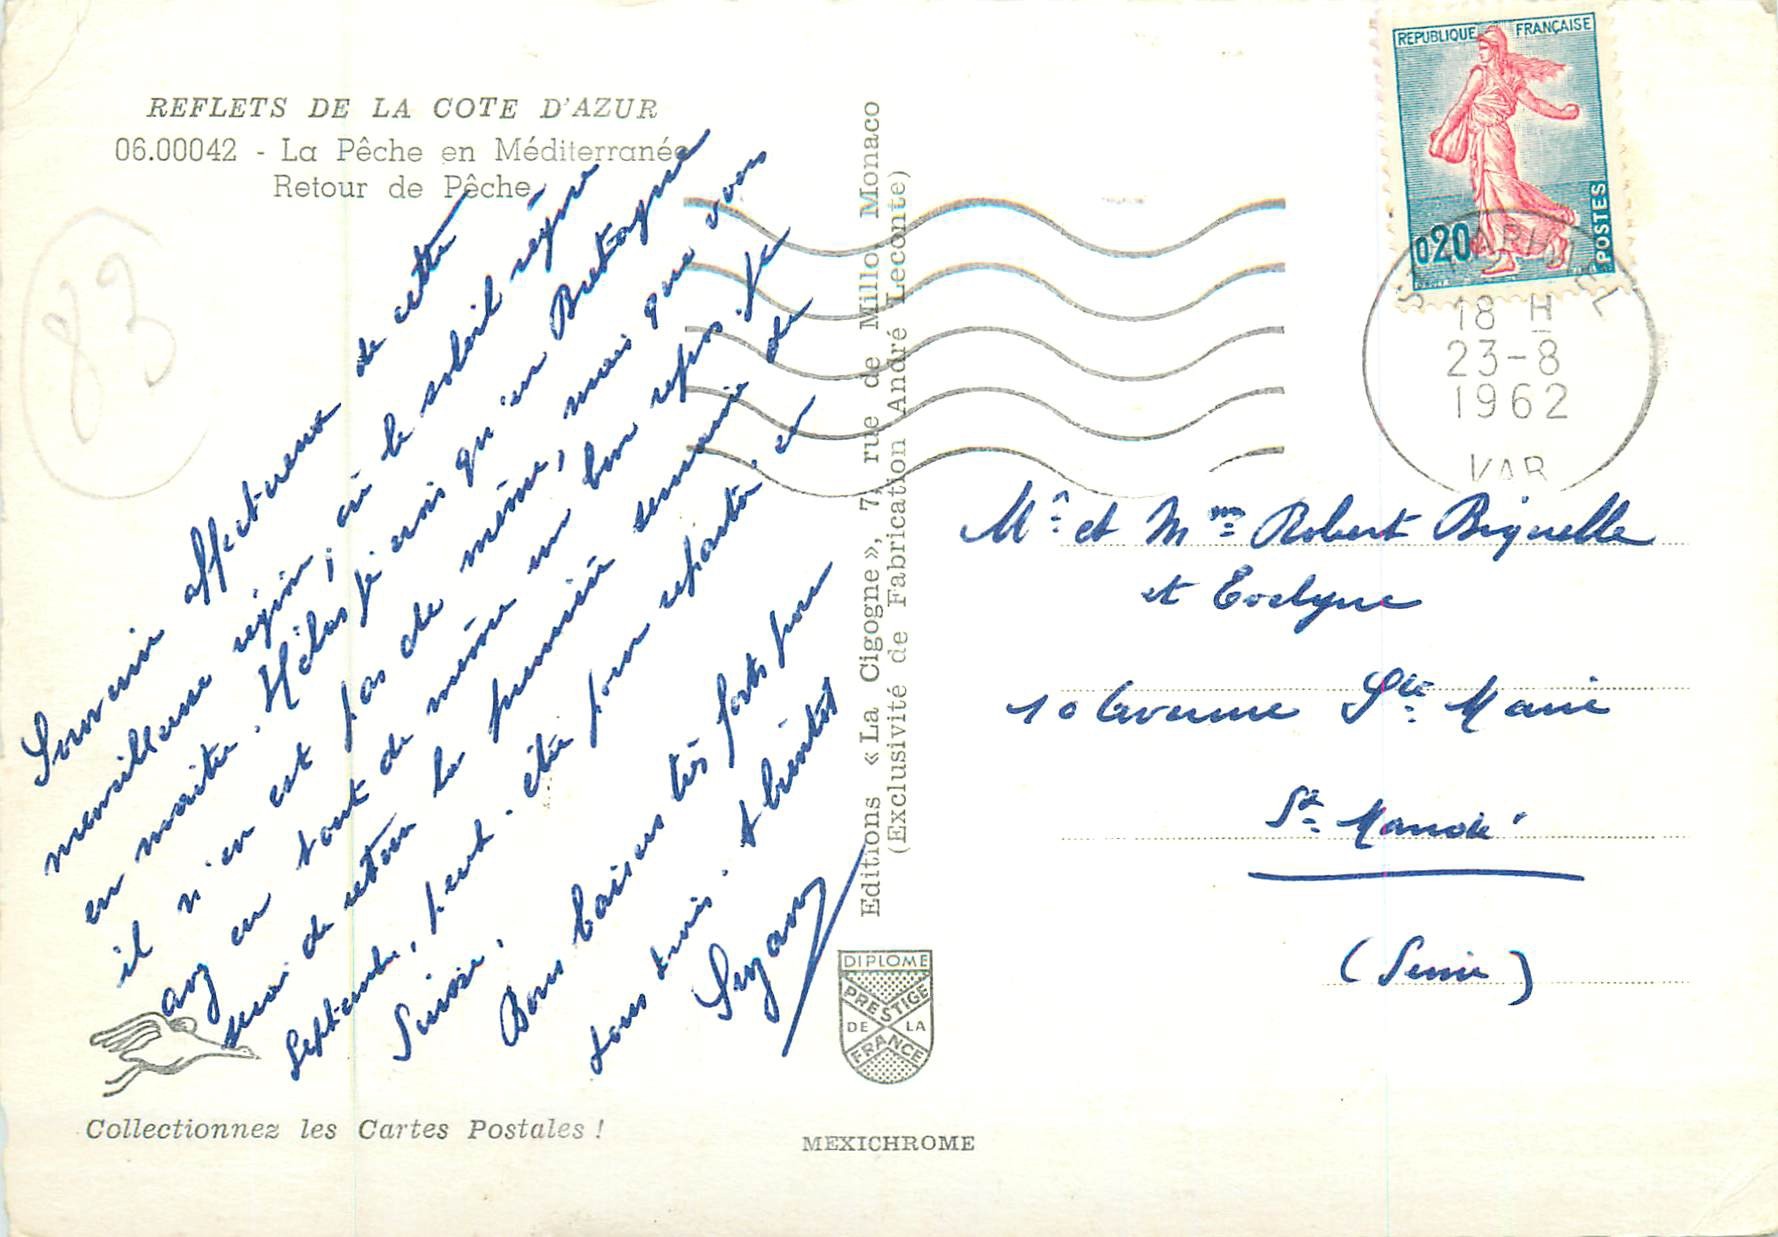 REFLETS DE LA COTE D'AZUR
06.00042 - La Pêche en Méditerranée
Retour de Pêche
83
Souvenir affectueux de cette
merveilleuse région, où le soleil règne
en maître. Hélas je crois qu'en Bretagne
il n'en est pas de même, mais que vous
avez eu tout de même un bon repos. Je
suis de retour la première semaine de
Septembre, peut-être pour repartir en
Suisse.
Bons baisers très forts pour
tous trois. A bientôt
Suzanne
Editions « La Cigogne », 7, rue de Millo, Monaco
(Exclusivité de Fabrication André Leconte)
REPUBLIQUE FRANÇAISE
0,20
POSTES
ST RAPHAEL
18 H
23-8
1962
VAR
Mr et Mme Robert Biguelle
et Evelyne
10 Avenue Ste Marie
St Mandé
(Seine)
DIPLOME
PRESTIGE
DE LA
FRANCE
Collectionnez les Cartes Postales !
MEXICHROME